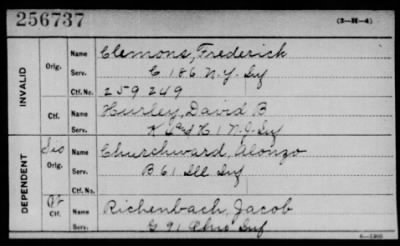 256737 (3—H—4)
INVALID
Orig.
Name Clemons, Frederick
Serv. C 186 N.Y. Inf
Ctf. No. 259249
Ctf.
Name Hurley, David B
Serv. K & H 1 N.J. Inf
DEPENDENT
Orig.
Name Churchward, Alonzo
Serv. B 61 Ill Inf
Ctf. No.
Ctf.
Name Richenbach, Jacob
Serv. G 91 Ohio Inf